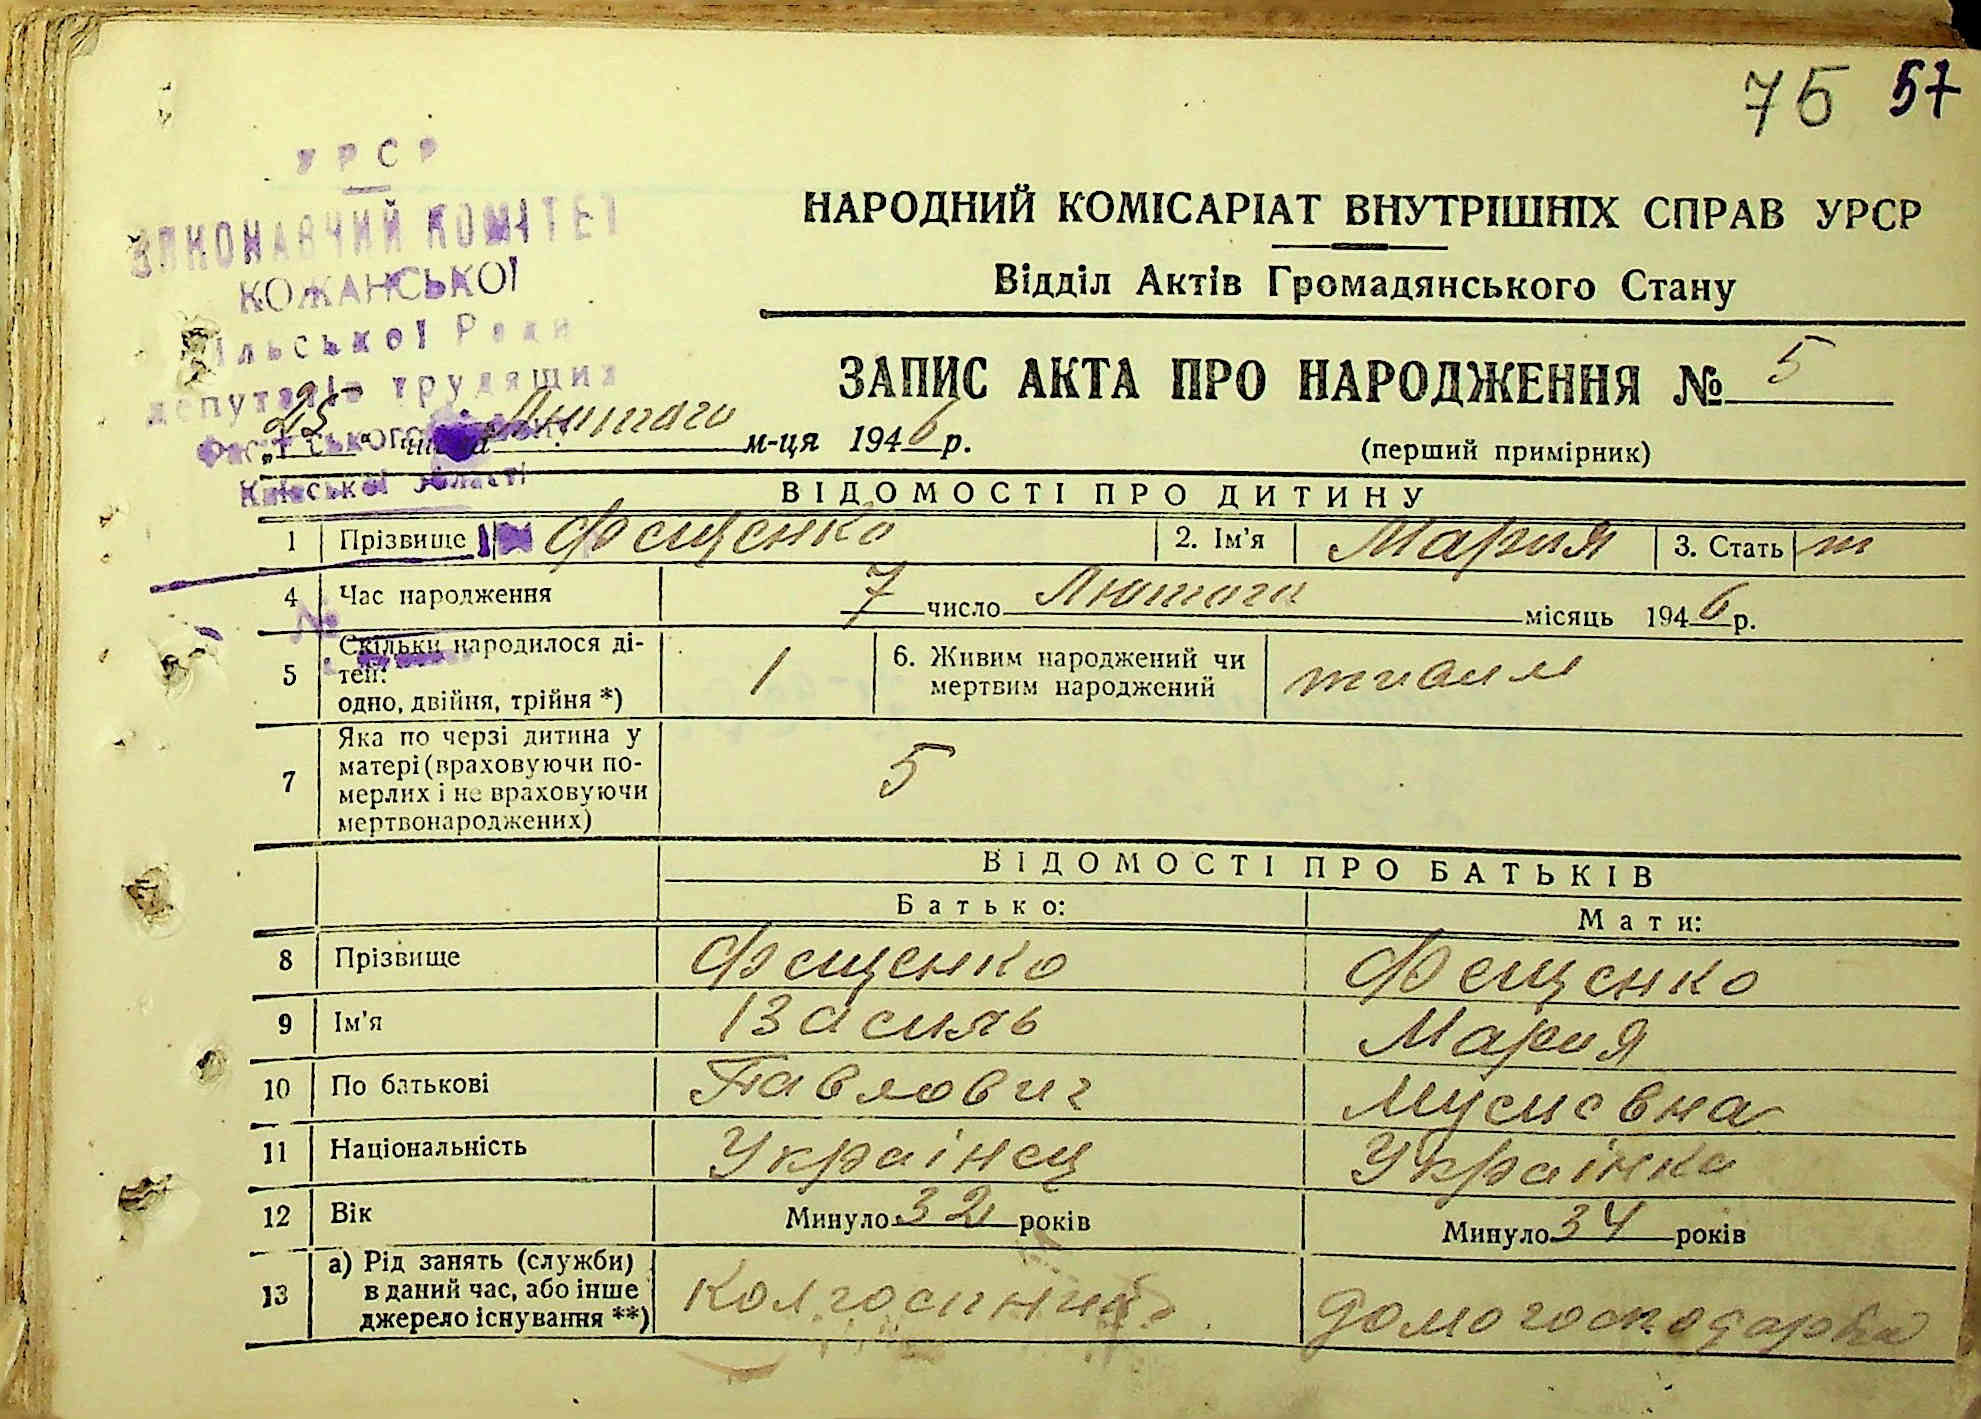 75 57
УРСР
ВИКОНАВЧИЙ КОМІТЕТ
КОЖАНСЬКОЇ
сільської Ради
депутатів трудящих
Київської області
НАРОДНИЙ КОМІСАРІАТ ВНУТРІШНІХ СПРАВ УРСР
Відділ Актів Громадянського Стану
ЗАПИС АКТА ПРО НАРОДЖЕННЯ № 5
„25“ числа Лютого м-ця 1946 р.
(перший примірник)
ВІДОМОСТІ ПРО ДИТИНУ
1 Прізвище Фещенко 2. Ім'я Мария 3. Стать ж
4 Час народження 7 число Лютого місяць 1946 р.
5 Скільки народилося ді-
тей:
одно, двійня, трійня *)
1
6. Живим народжений чи
мертвим народжений
живим
7 Яка по черзі дитина у
матері (враховуючи по-
мерлих і не враховуючи
мертвонароджених)
5
ВІДОМОСТІ ПРО БАТЬКІВ
Батько: Мати:
8 Прізвище Фещенко Фещенко
9 Ім'я Василь Мария
10 По батькові Павлович Мусиєвна
11 Національність Українец Українка
12 Вік Минуло 32 років Минуло 34 років
13 а) Рід занять (служби)
в даний час, або інше
джерело існування **)
Колгоспник домогосподарка